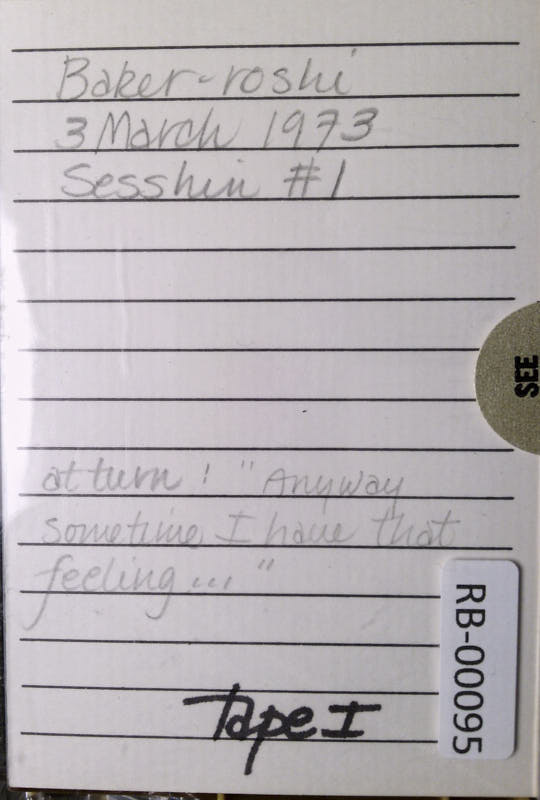 Baker-roshi
3 March 1973
Sesshin #1
SEE
at turn! "Anyway
sometime I have that
feeling..."
RB-00095
Tape I